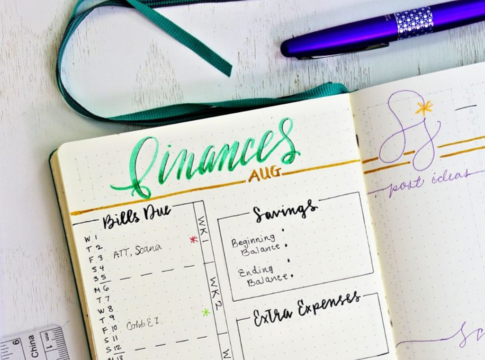 Finances
AUG
Bills Due
W 1
T 2
F 3 ATT, Scana
S 4
S 5
M 6
T 7
W 8
T 9
F 10
S 11
S 12
WK 1
WK 2
W
Savings
Beginning
Balance:
Ending
Balance:
Extra Expenses
post ideas
China
6